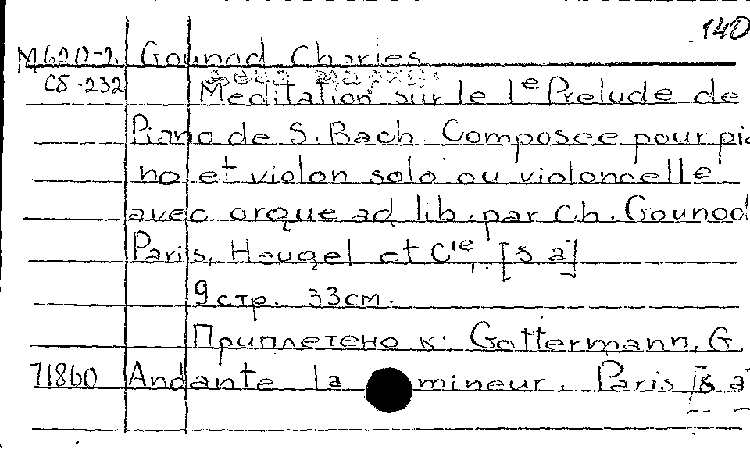 140
M620-2 Gounod Charles
Сб-232 Meditation sur le 1e Prelude de
Piano de S. Bach. Composee pour pia
no et violon solo ou violoncelle
avec orgue ad lib. par Ch. Gounod
Paris, Heugel et Cie, [s a]
9 стр. 33см.
Приплетено к: Gottermann, G.
71860 Andante la mineur. Paris [s a